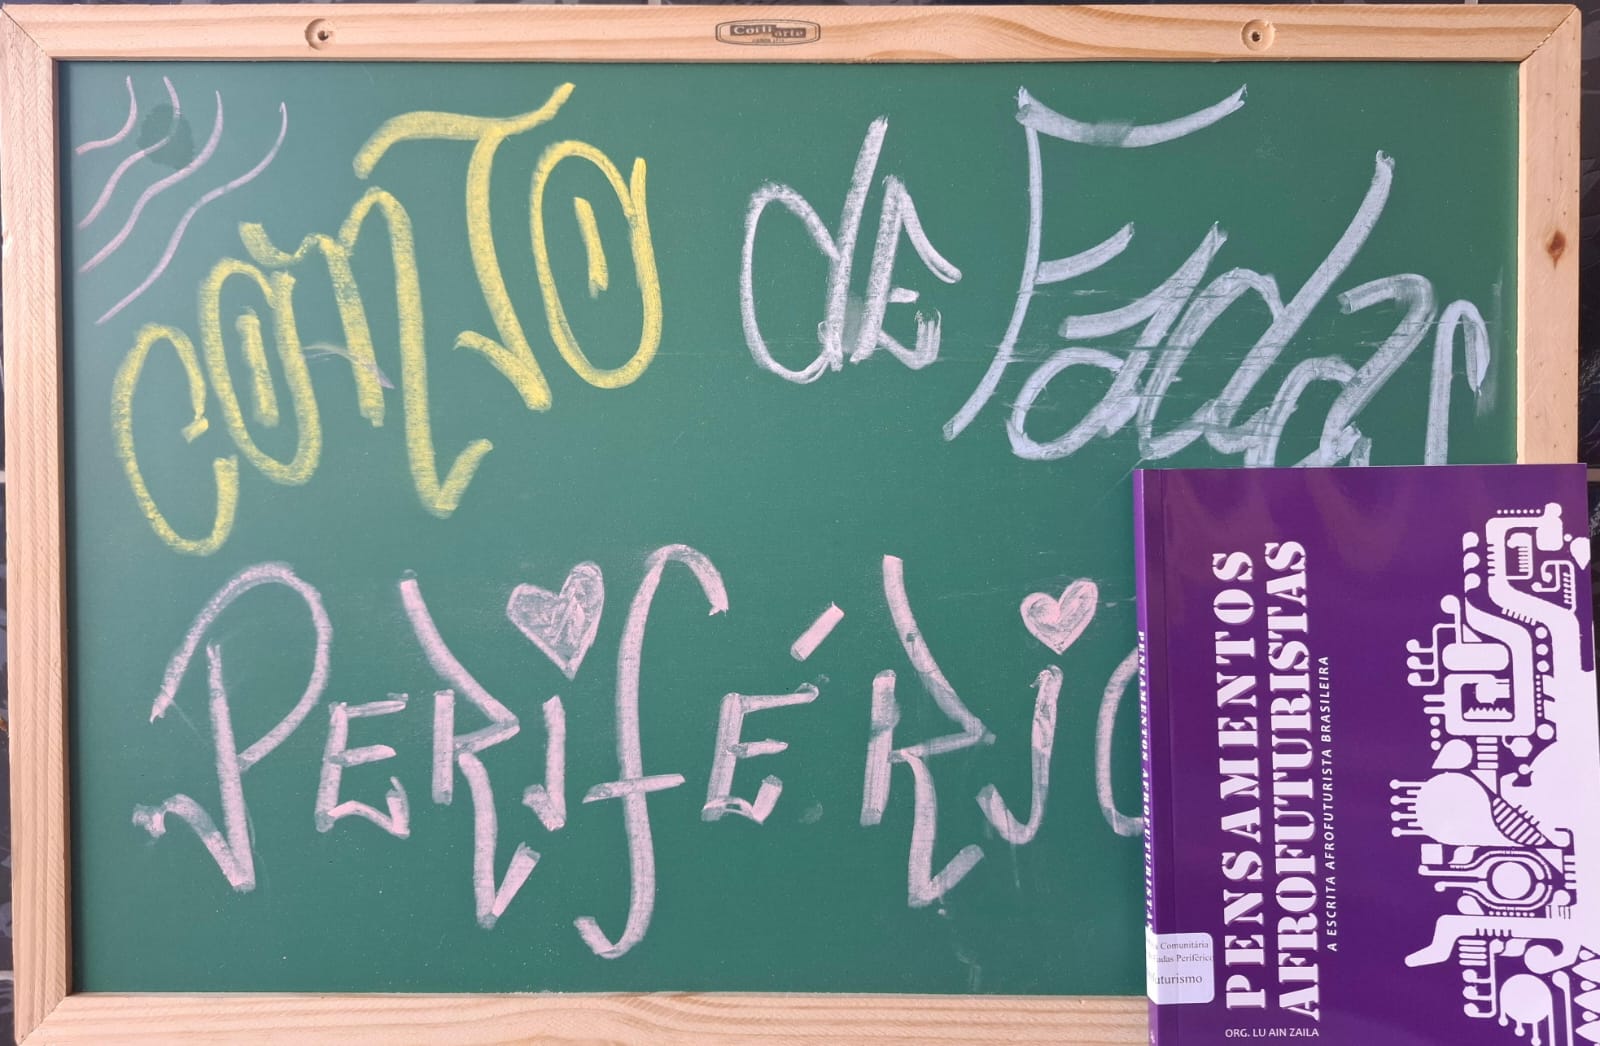 Cortiarte
CONTO de Fadas
PERIFÉRIC
PENSAMENTOS
AFROFUTURISTAS
A ESCRITA AFROFUTURISTA BRASILEIRA
ORG. LU AIN ZAILA
PENSAMENTOS AFROFUTURISTA
Comunitária
Fadas Periférico
futurismo